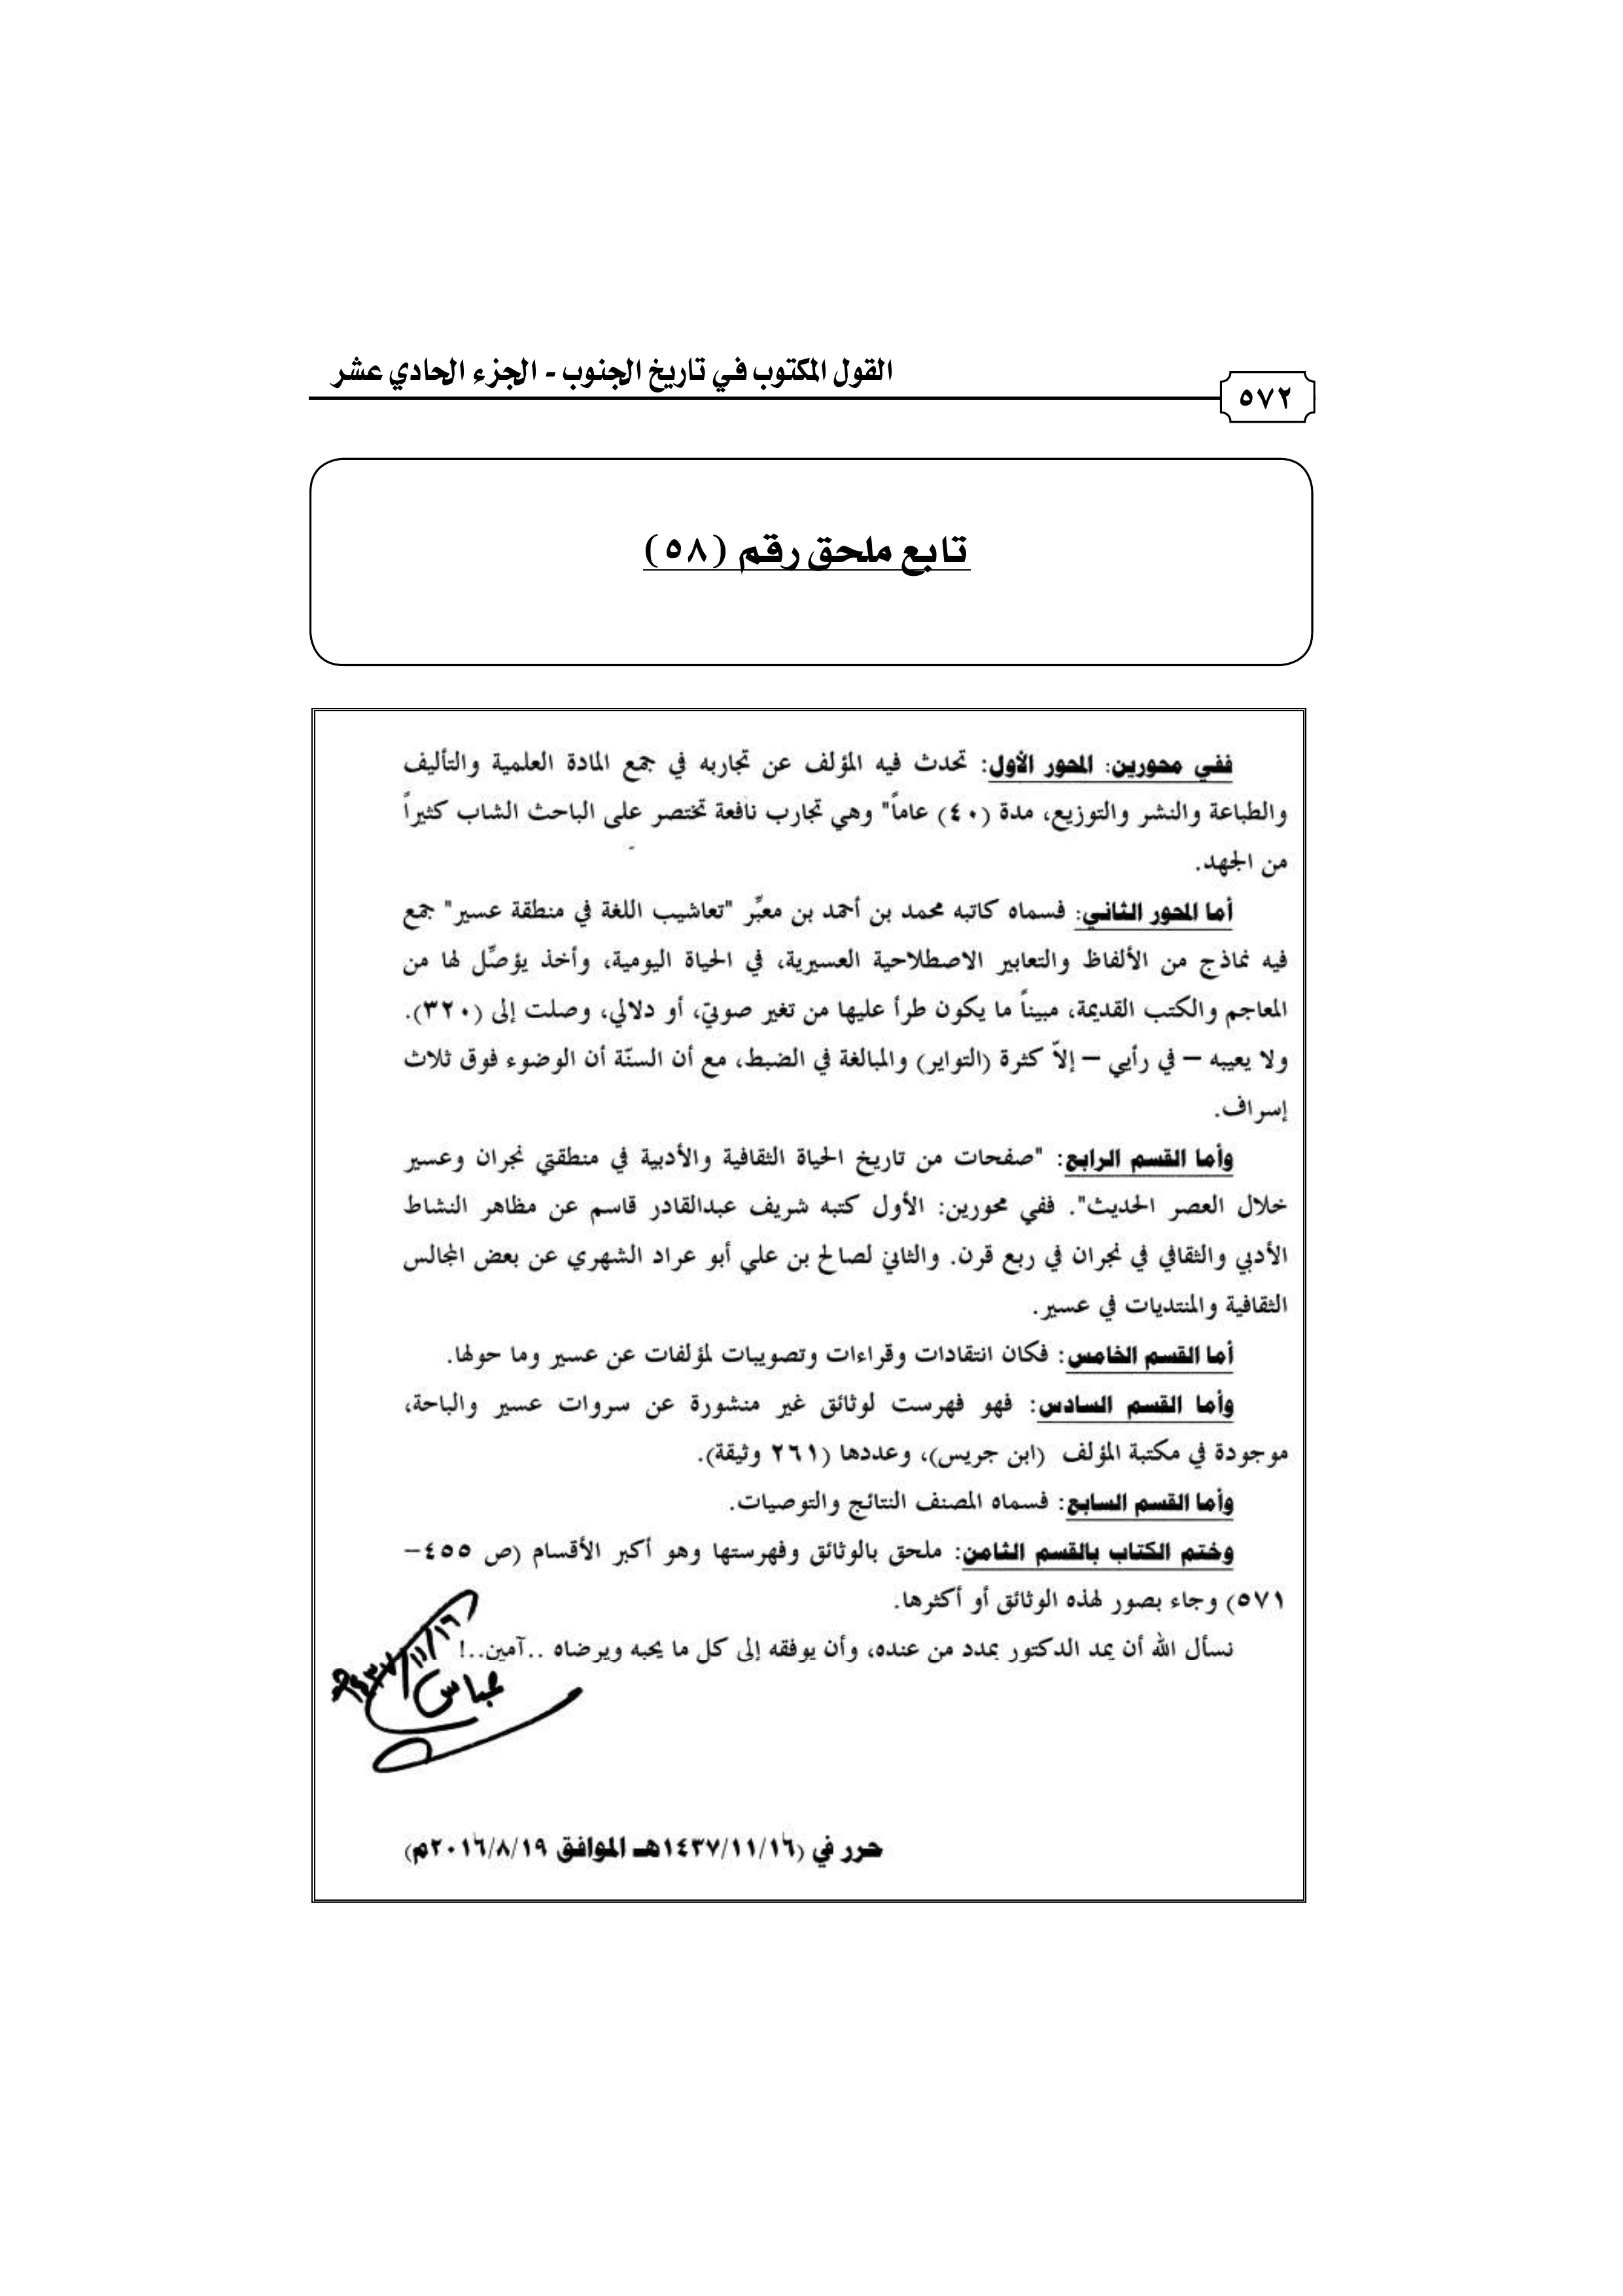 القول المكتوب في تاريخ الجنوب - الجزء الحادي عشر
٥٧٢
تابع ملحق رقم (٥٨)
ففي محورين: المحور الأول: تحدث فيه المؤلف عن تجاربه في جمع المادة العلمية والتأليف
والطباعة والنشر والتوزيع، مدة (٤٠) عاماً" وهي تجارب نافعة تختصر على الباحث الشاب كثيراً
من الجهد.
أما المحور الثاني: فسماه كاتبه محمد بن أحمد بن معبِّر "تعاشيب اللغة في منطقة عسير" جمع
فيه نماذج من الألفاظ والتعابير الاصطلاحية العسيرية، في الحياة اليومية، وأخذ يؤصِّل لها من
المعاجم والكتب القديمة، مبيناً ما يكون طرأ عليها من تغير صوتيّ، أو دلالي، وصلت إلى (٣٢٠).
ولا يعيبه – في رأيي – إلاّ كثرة (التواير) والمبالغة في الضبط، مع أن السنّة أن الوضوء فوق ثلاث
إسراف.
وأما القسم الرابع: "صفحات من تاريخ الحياة الثقافية والأدبية في منطقتي نجران وعسير
خلال العصر الحديث". ففي محورين: الأول كتبه شريف عبدالقادر قاسم عن مظاهر النشاط
الأدبي والثقافي في نجران في ربع قرن. والثاني لصالح بن علي أبو عراد الشهري عن بعض المجالس
الثقافية والمنتديات في عسير.
أما القسم الخامس: فكان انتقادات وقراءات وتصويبات لمؤلفات عن عسير وما حولها.
وأما القسم السادس: فهو فهرست لوثائق غير منشورة عن سروات عسير والباحة،
موجودة في مكتبة المؤلف (ابن جريس)، وعددها (٢٦١ وثيقة).
وأما القسم السابع: فسماه المصنف النتائج والتوصيات.
وختم الكتاب بالقسم الثامن: ملحق بالوثائق وفهرستها وهو أكبر الأقسام (ص ٤٥٥–
٥٧١) وجاء بصور لهذه الوثائق أو أكثرها.
نسأل الله أن يمد الدكتور بمدد من عنده، وأن يوفقه إلى كل ما يحبه ويرضاه ..آمين..!
عباس
حرر في (١٤٣٧/١١/١٦هـ الموافق ٢٠١٦/٨/١٩م)